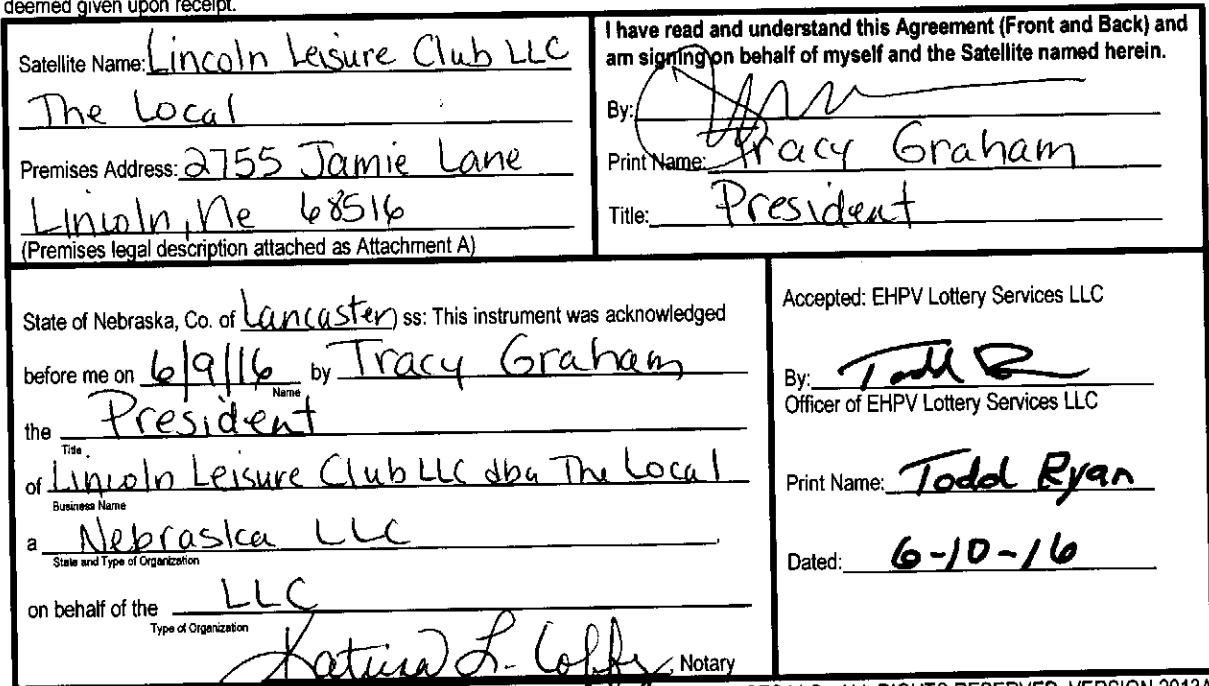 deemed given upon receipt.
Satellite Name: Lincoln Leisure Club LLC
The Local
Premises Address: 2755 Jamie Lane
Lincoln, Ne 68516
(Premises legal description attached as Attachment A)
I have read and understand this Agreement (Front and Back) and
am signing on behalf of myself and the Satellite named herein.
By:
Print Name: Tracy Graham
Title: President
State of Nebraska, Co. of Lancaster) ss: This instrument was acknowledged
before me on 6/9/16 by Tracy Graham
Name
the President
Title
of Lincoln Leisure Club LLC dba The Local
Business Name
a Nebraska LLC
State and Type of Organization
on behalf of the LLC
Type of Organization
Katrina L. , Notary
Accepted: EHPV Lottery Services LLC
By: Todd R
Officer of EHPV Lottery Services LLC
Print Name: Todd Ryan
Dated: 6-10-16
ALL RIGHTS RESERVED. VERSION 2013A